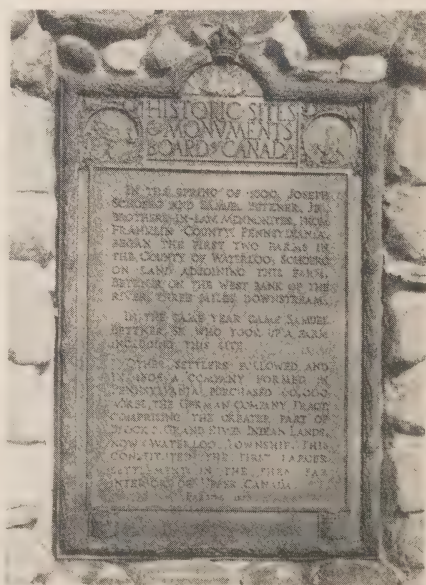 HISTORIC SITES
& MONVMENTS
BOARD OF CANADA
IN THE SPRING OF 1800, JOSEPH
SCHOERG AND SAMUEL BETZNER, JR.
BROTHERS-IN-LAW, MENNONITES, FROM
FRANKLIN COUNTY, PENNSYLVANIA,
BEGAN THE FIRST TWO FARMS IN
THE COUNTY OF WATERLOO, SCHOERG
ON LAND ADJOINING THIS FARM,
BETZNER ON THE WEST BANK OF THE
RIVER, THREE MILES DOWNSTREAM.
IN THE SAME YEAR CAME SAMUEL
BETZNER, SR. WHO TOOK UP A FARM
INCLUDING THIS SITE.
OTHER SETTLERS FOLLOWED AND
A COMPANY FORMED IN
PENNSYLVANIA PURCHASED 60,000
ACRES, THE GERMAN COMPANY TRACT,
COMPRISING THE GREATER PART OF
BLOCK 2, GRAND RIVER INDIAN LANDS,
NOW WATERLOO TOWNSHIP. THIS
CONSTITUTED THE FIRST LARGER
SETTLEMENT IN THE THEN FAR
INTERIOR OF UPPER CANADA.